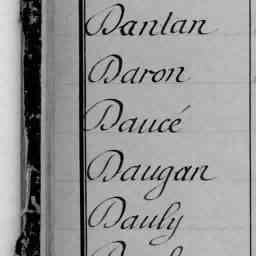 Danlan
Daron
Daucé
Daugan
Dauly